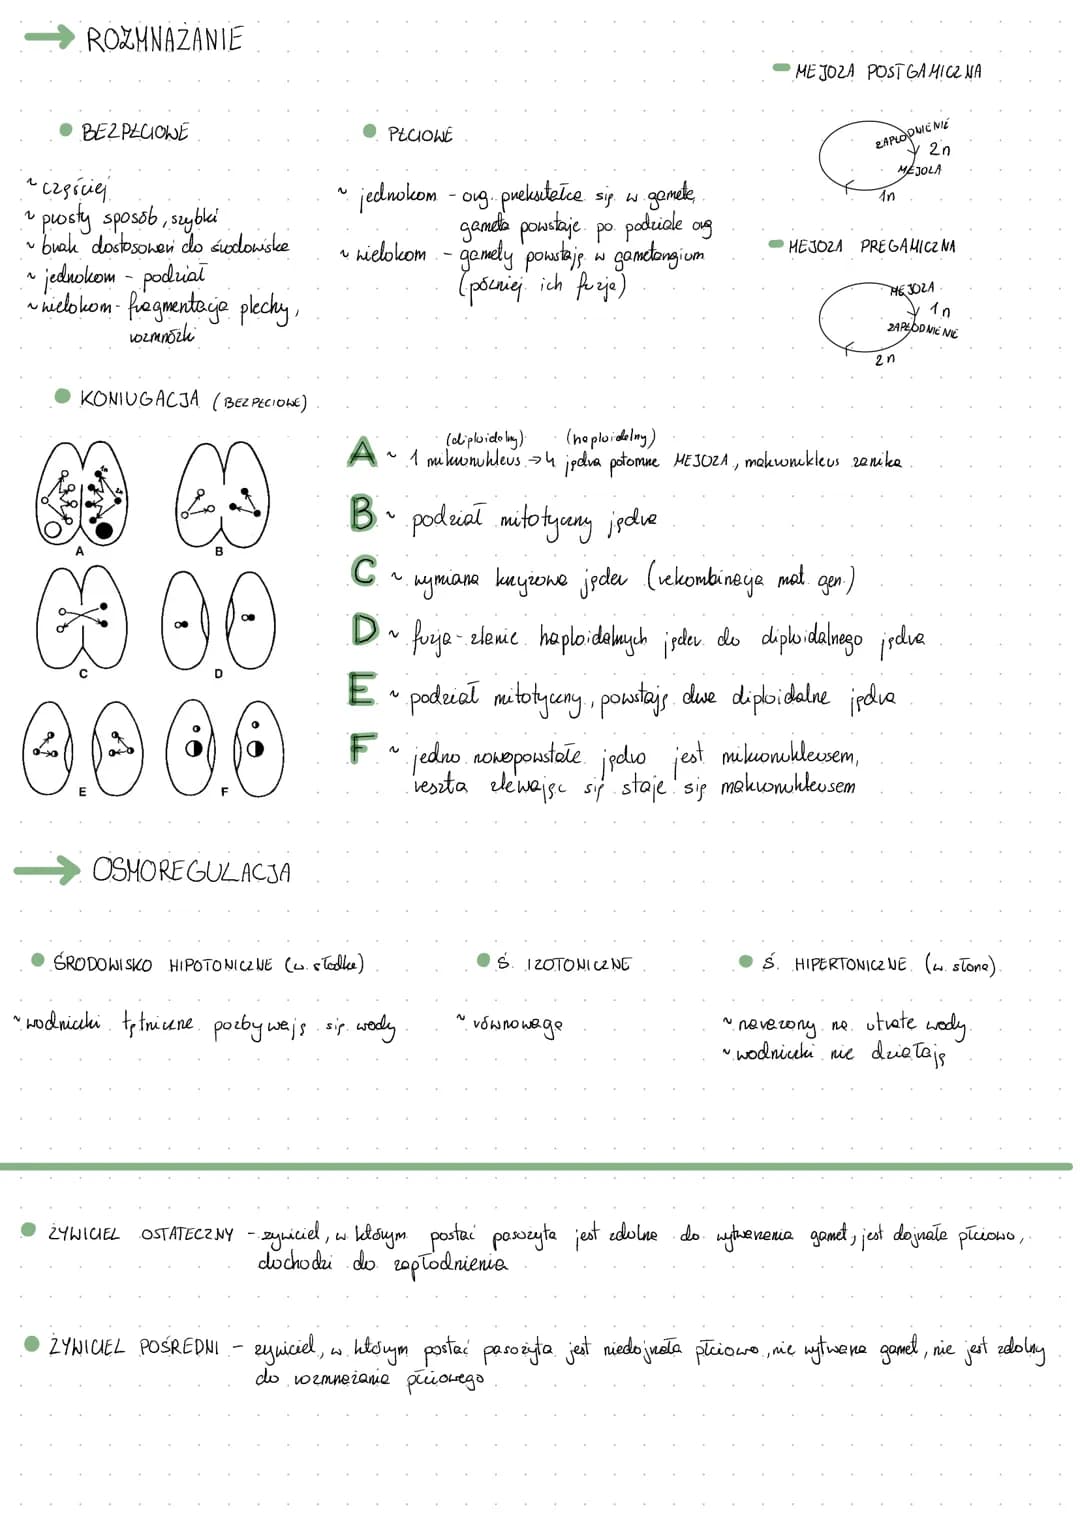 → ROZMNAŻANIE
- MEJOZA POSTGAMICZNA
ZAPŁODNIENIE
2n
MEJOZA
1n
- MEJOZA PREGAMICZNA
MEJOZA
1n
ZAPŁODNIENIE
2n
• BEZPŁCIOWE
~ częściej
~ prosty sposób, szybki
~ brak dostosowań do środowiska
~ jednokom - podział
~ wielokom - fragmentacja plechy,
rozmnóżki
• PŁCIOWE
~ jednokom - org. przekształca się w gametę,
gameta powstaje po podziale org
~ wielokom - gamety powstają w gametangium
(później ich fuzja)
• KONIUGACJA (BEZPŁCIOWE)
A
B
C
D
E
F
(diploidalny) (haploidalny)
A ~ 1 mikronukleus → 4 jądra potomne MEJOZA, makronukleus zanika
B ~ podział mitotyczny jądra
C ~ wymiana krzyżowa jąder (rekombinacja mat. gen.)
D ~ fuzja - zlanie haploidalnych jąder do diploidalnego jądra
E ~ podział mitotyczny, powstają dwa diploidalne jądra
F ~ jedno nowopowstałe jądro jest mikronukleusem,
reszta zlewając się staje się makronukleusem
→ OSMOREGULACJA
• ŚRODOWISKO HIPOTONICZNE (w. słodka)
~ wodniczki tętniczne pozbywają się wody
• Ś. IZOTONICZNE
~ równowaga
• Ś. HIPERTONICZNE (w. słona)
~ narażony na utratę wody
~ wodniczki nie działają
• ŻYWICIEL OSTATECZNY - żywiciel, w którym postać pasożyta jest zdolna do wytwarzania gamet, jest dojrzała płciowo,
dochodzi do zapłodnienia
• ŻYWICIEL POŚREDNI - żywiciel, w którym postać pasożyta jest niedojrzała płciowo, nie wytwarza gamet, nie jest zdolny
do rozmnażania płciowego